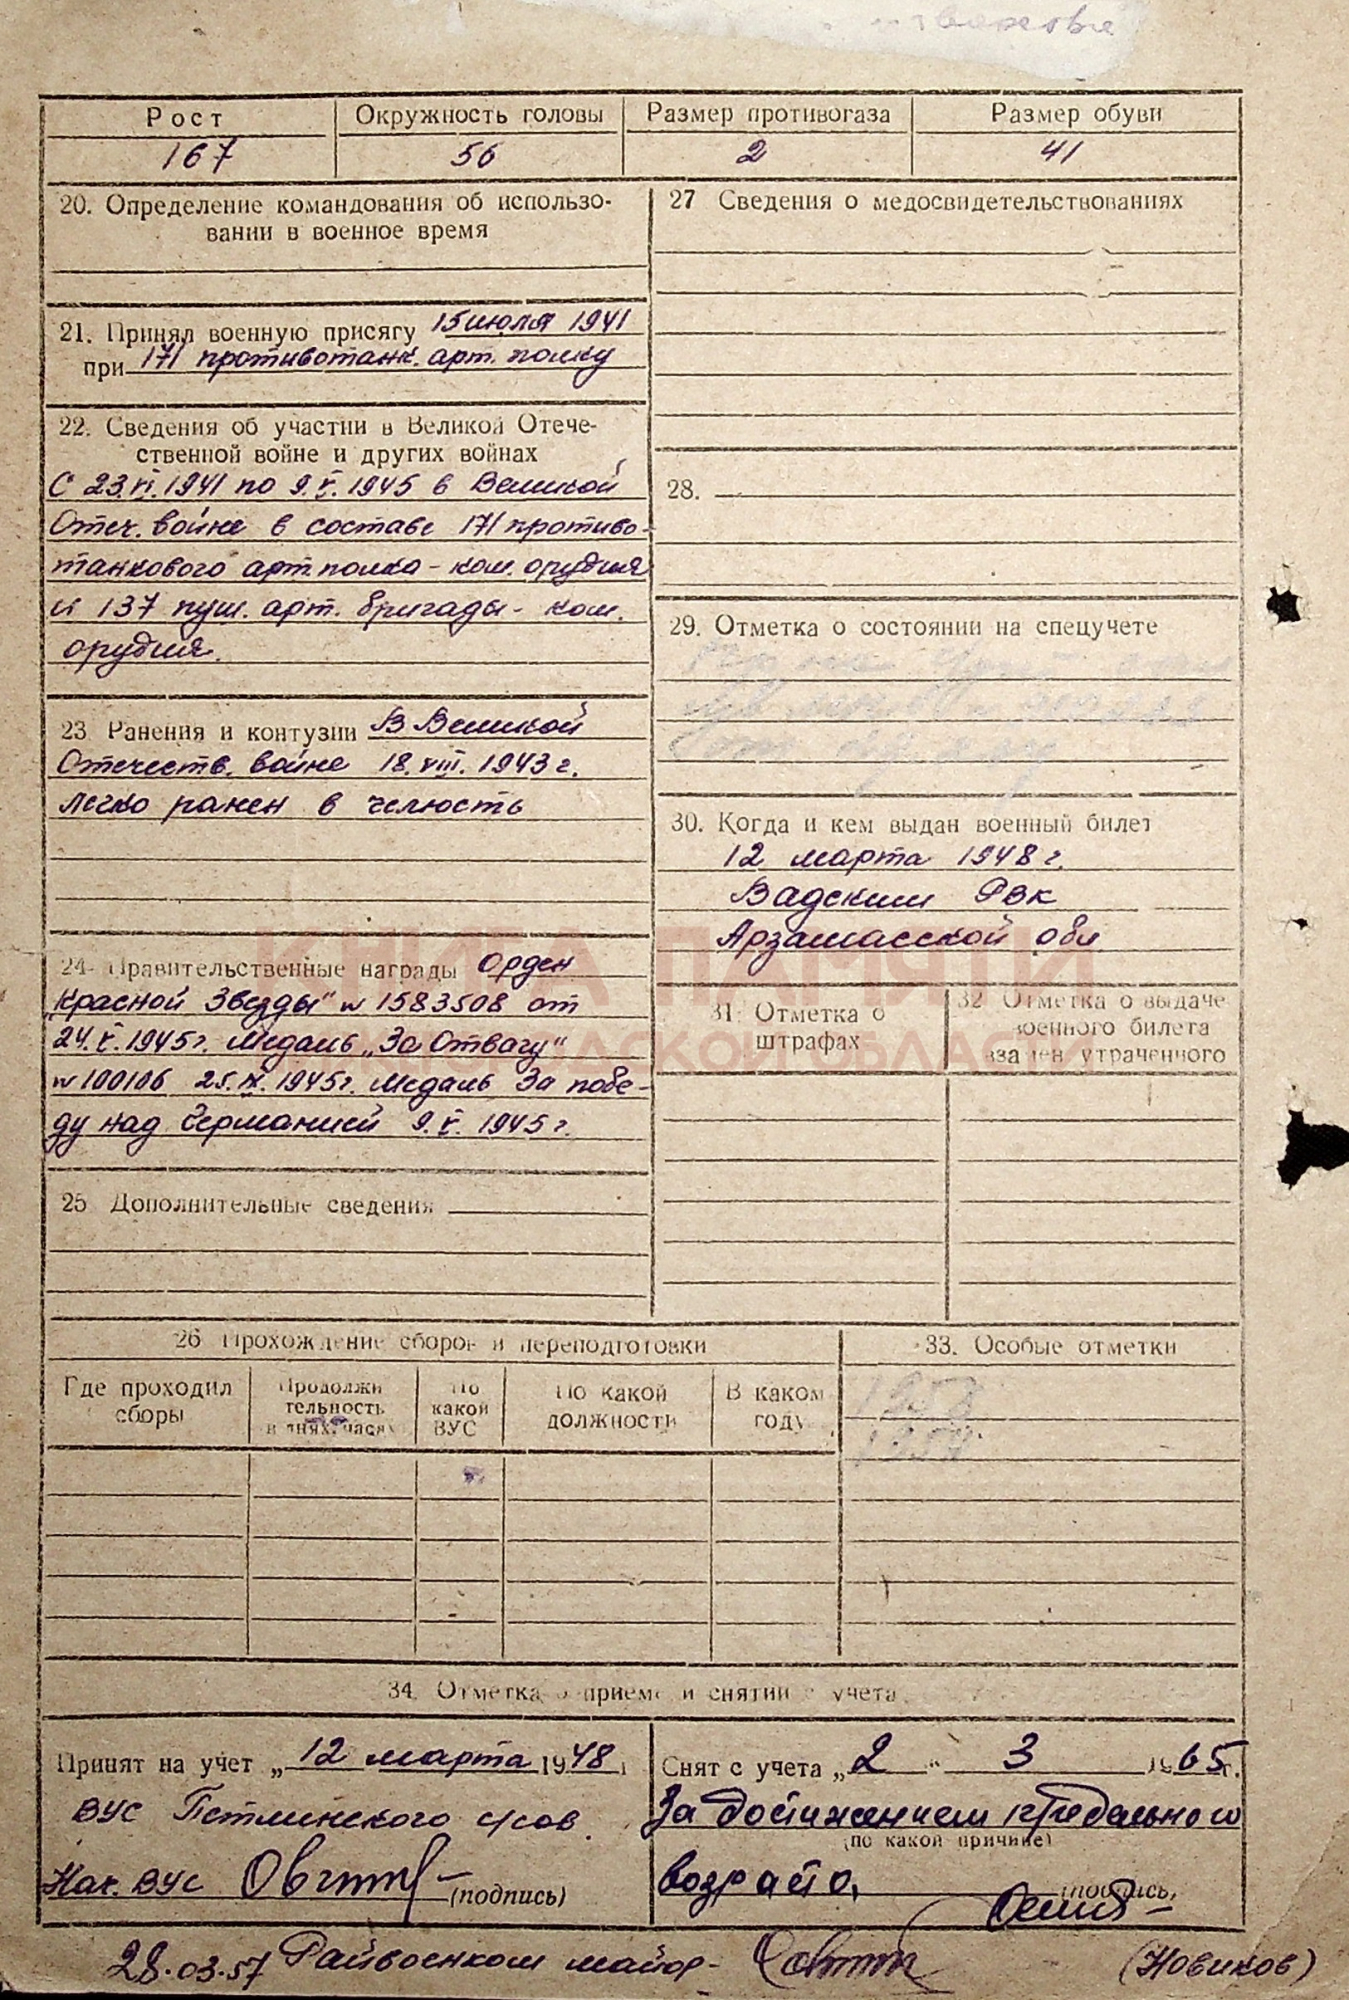 Рост Окружность головы Размер противогаза Размер обуви
167 56 2 41
20. Определение командования об использо-
вании в военное время
21. Принял военную присягу 15 июля 1941
при 171 противотанк. арт. полку
22. Сведения об участии в Великой Отече-
ственной войне и других войнах
С 23.VI.1941 по 9.V.1945 в Великой
Отеч. войне в составе 171 противо-
танкового арт. полка - ком. орудия
и 137 пуш. арт. бригады - ком.
орудия.
23. Ранения и контузии В Великой
Отечеств. войне 18.VIII.1943 г.
легко ранен в челюсть
24. Правительственные награды Орден
„Красной Звезды" № 1583508 от
24.V.1945 г. Медаль „За Отвагу"
№ 100106 25.IX.1945 г. Медаль За побе-
ду над Германией 9.V.1945 г.
25 Дополнительные сведения
27 Сведения о медосвидетельствованиях
28.
29. Отметка о состоянии на спецучете
30. Когда и кем выдан военный билет
12 марта 1948 г.
Вадским РВК
Арзамасской обл
КНИГА ПАМЯТИ
31. Отметка о
штрафах
32 Отметка о выдаче
военного билета
взамен утраченного
26 Прохождение сборов и переподготовки
Где проходил
сборы
Продолжи
тельность
в днях, часах
По
какой
ВУС
По какой
должности
В каком
году
33. Особые отметки
34. Отметка о приеме и снятии с учета
Принят на учет „12 марта 1948 г
ВУС Петлинского с/сов.
Нач. ВУС
(подпись)
Снят с учета „2" 3 1965 г.
За достижением предельного
(по какой причине)
возраста,
(подпись)
28.03.57 Райвоенком майор - (Новиков)